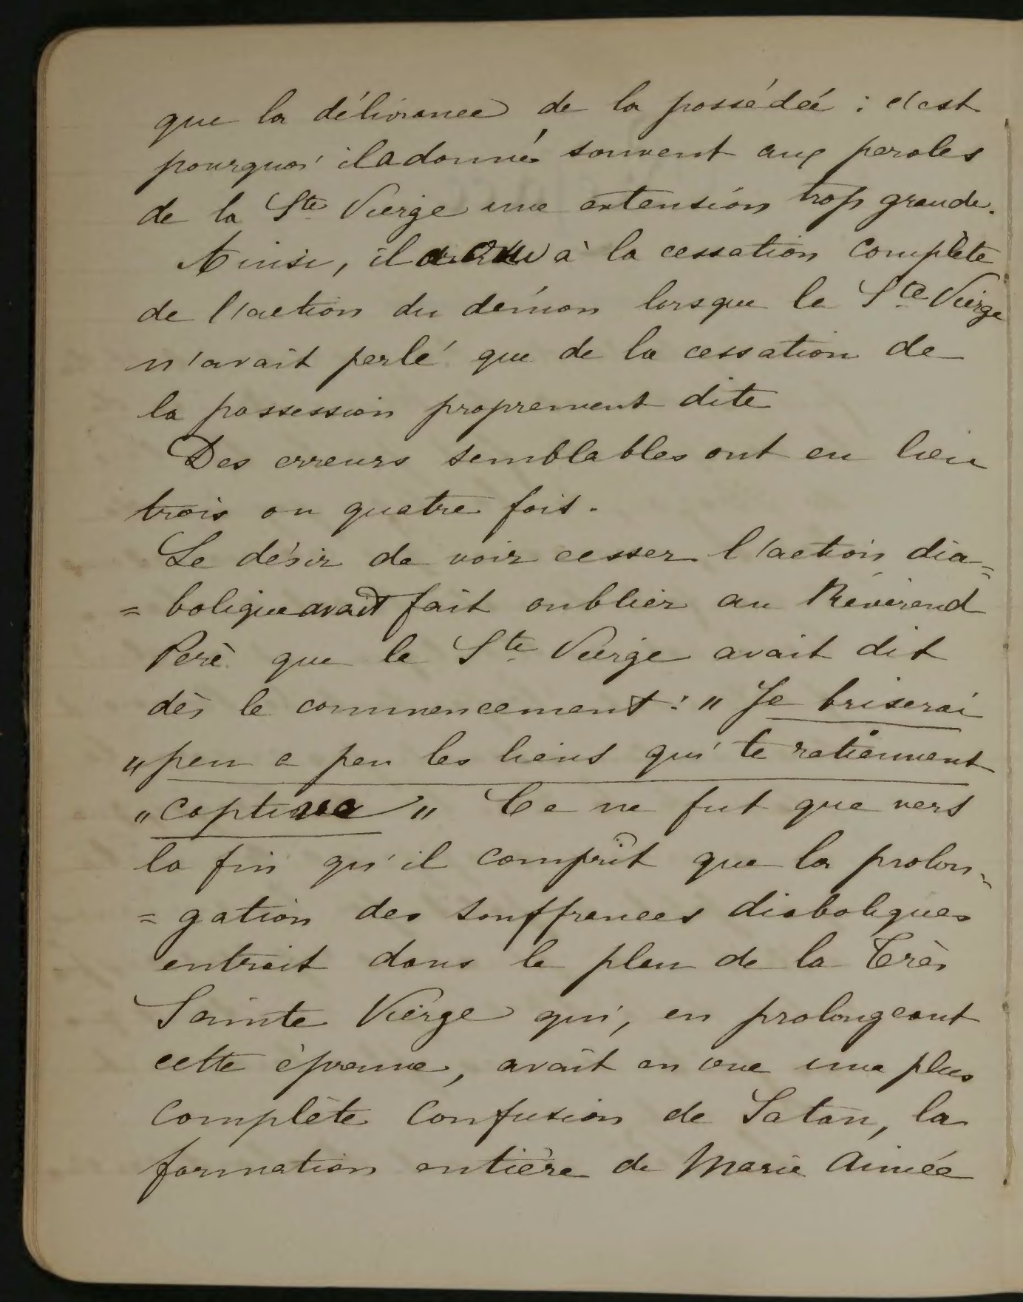 que la délivrance de la possédée : c'est
pourquoi il a donné souvent aux paroles
de la Ste Vierge une extension trop grande.
Ainsi, il a cru à la cessation complète
de l'action du démon lorsque la Ste Vierge
n'avait parlé que de la cessation de
la possession proprement dite
Des erreurs semblables ont eu lieu
trois ou quatre fois.
Le désir de voir cesser l'action dia=
= bolique avait fait oublier au Révérend
Père que la Ste Vierge avait dit
dès le commencement : " Je briserai
" peu a peu les liens qui te retiennent
" captive " Ce ne fut que vers
la fin qu'il comprit que la prolon=
= gation des souffrances diaboliques
entrait dans le plan de la Très
Sainte Vierge qui, en prolongeant
cette épreuve, avait en vue une plus
complète confusion de Satan, la
formation entière de Marie Aimée